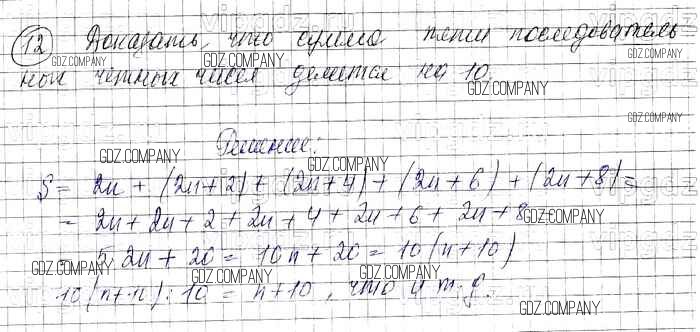 12 Доказать, что сумма пяти последователь
ных четных чисел делится на 10.
Решение:
S = 2n + (2n+2) + (2n+4) + (2n+6) + (2n+8) =
= 2n + 2n + 2 + 2n + 4 + 2n + 6 + 2n + 8
5 2n + 20 = 10n + 20 = 10(n+10)
: 10 = n+10, что и т.д.
GDZ.COMPANY
GDZ.COMPANY
GDZ.COMPANY
GDZ.COMPANY
GDZ.COMPANY
GDZ.COMPANY
GDZ.COMPANY
GDZ.COMPANY
GDZ.COMPANY
GDZ.COMPANY
GDZ.COMPANY
GDZ.COMPANY